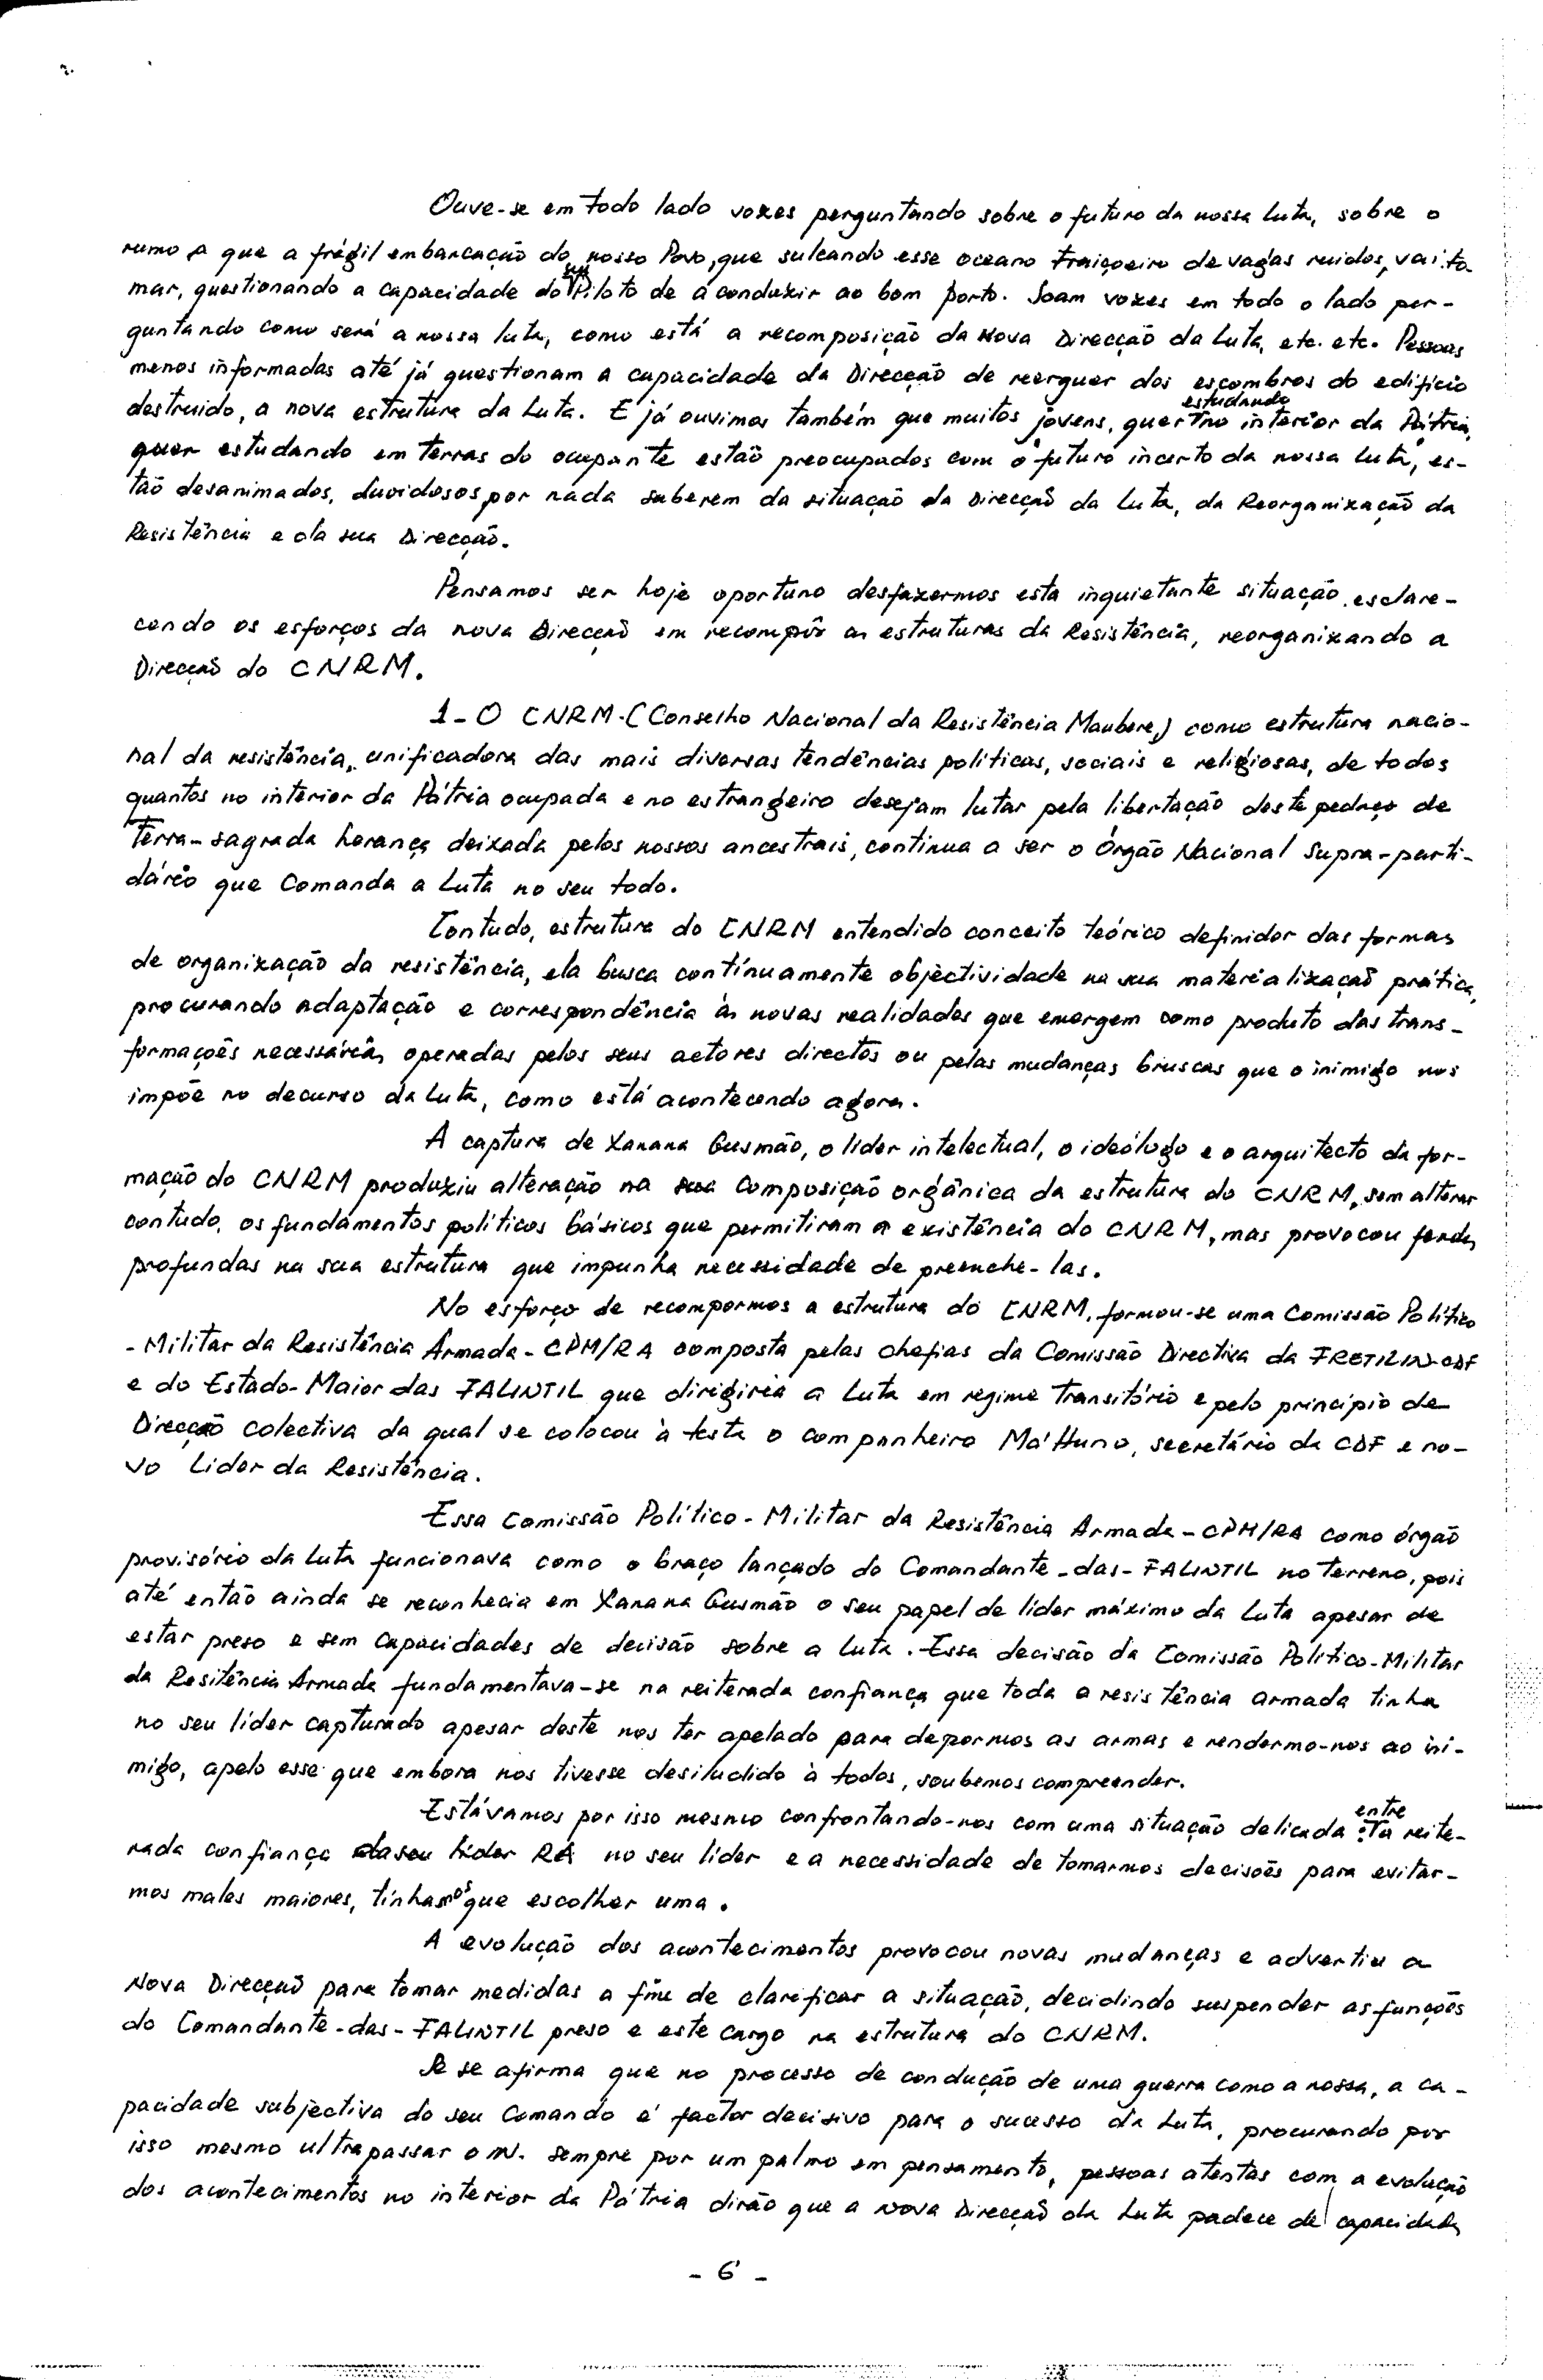 Ouve-se em todo lado vozes perguntando sobre o futuro da nossa luta, sobre o
rumo a que a frágil embarcação do nosso Povo, que sulcando esse oceano traiçoeiro de vagas ruidos, vai to-
mar, questionando a capacidade do seu Piloto de a conduzir ao bom porto. Soam vozes em todo o lado per-
guntando como será a nossa luta, como está a recomposição da Nova Direcção da Luta, etc. etc. Pessoas
menos informadas até já questionam a capacidade da Direcção de reerguer dos escombros do edifício
destruido, a nova estrutura da Luta. E já ouvimos também que muitos jovens, quer estudando no interior da Pátria,
quer estudando em terras do ocupante estão preocupados com o futuro incerto da nossa luta, es-
tão desanimados, duvidosos por nada saberem da situação da Direcção da Luta, da Reorganização da
Resistência e da sua Direcção.
Pensamos ser hoje oportuno desfazermos esta inquietante situação, esclare-
cendo os esforços da nova Direcção em recompôr as estruturas da Resistência, reorganizando a
Direcção do CNRM.
1- O CNRM-(Conselho Nacional da Resistência Maubere,) como estrutura nacio-
nal da resistência, unificadora das mais diversas tendências políticas, sociais e religiosas, de todos
quantos no interior da Pátria ocupada e no estrangeiro desejam lutar pela libertação deste pedaço de
Terra-sagrada herança deixada pelos nossos ancestrais, continua a ser o Órgão Nacional Supra-parti-
dário que Comanda a Luta no seu todo.
Contudo, estrutura do CNRM entendido conceito teórico definidor das formas
de organização da resistência, ela busca contínuamente objectividade na sua materialização prática,
procurando adaptação e correspondência às novas realidades que emergem como produto das trans-
formações necessárias operadas pelos seus actores directos ou pelas mudanças bruscas que o inimigo nos
impõe no decurso da Luta, como está acontecendo agora.
A captura de Xanana Gusmão, o líder intelectual, o ideólogo e o arquitecto da for-
mação do CNRM produziu alteração na sua Composição orgânica da estrutura do CNRM, sem alterar
contudo, os fundamentos políticos básicos que permitiram a existência do CNRM, mas provocou fendas
profundas na sua estrutura que impunha necessidade de preenche-las.
No esforço de recompormos a estrutura do CNRM, formou-se uma Comissão Político
-Militar da Resistência Armada-CPM/RA composta pelas chefias da Comissão Directiva da FRETILIN-CDF
e do Estado-Maior das FALINTIL que dirigiria a Luta em regime transitório e pelo princípio de
Direcção colectiva da qual se colocou à testa o companheiro Ma'Huno, secretário da CDF e no-
vo Líder da Resistência.
Essa Comissão Político-Militar da Resistência Armada-CPM/RA como órgão
provisório da luta funcionava como o braço lançado do Comandante-das-FALINTIL no terreno, pois
até então ainda se reconhecia em Xanana Gusmão o seu papel de líder máximo da Luta apesar de
estar preso e sem capacidades de decisão sobre a luta. Essa decisão da Comissão Político-Militar
da Resitência Armada fundamentava-se na reiterada confiança que toda a resistência armada tinha
no seu líder capturado apesar deste nos ter apelado para depormos as armas e rendermo-nos ao ini-
migo, apelo esse que embora nos tivesse desiludido à todos, soubemos compreender.
Estávamos por isso mesmo confrontando-nos com uma situação delicada: entre a reite-
rada confiança da RA no seu líder e a necessidade de tomarmos decisões para evitar-
mos males maiores, tínhamos que escolher uma.
A evolução dos acontecimentos provocou novas mudanças e advertiu a
Nova Direcção para tomar medidas a fim de clarificar a situação, decidindo suspender as funções
do Comandante-das-FALINTIL preso e este cargo na estrutura do CNRM.
Se se afirma que no processo de condução de uma guerra como a nossa, a ca-
pacidade subjectiva do seu Comando é factor decisivo para o sucesso da Luta, procurando por
isso mesmo ultrapassar o in. sempre por um palmo em pensamento, pessoas atentas com a evolução
dos acontecimentos no interior da Pátria dirão que a Nova Direcção da Luta padece de capacidades
- 6 -